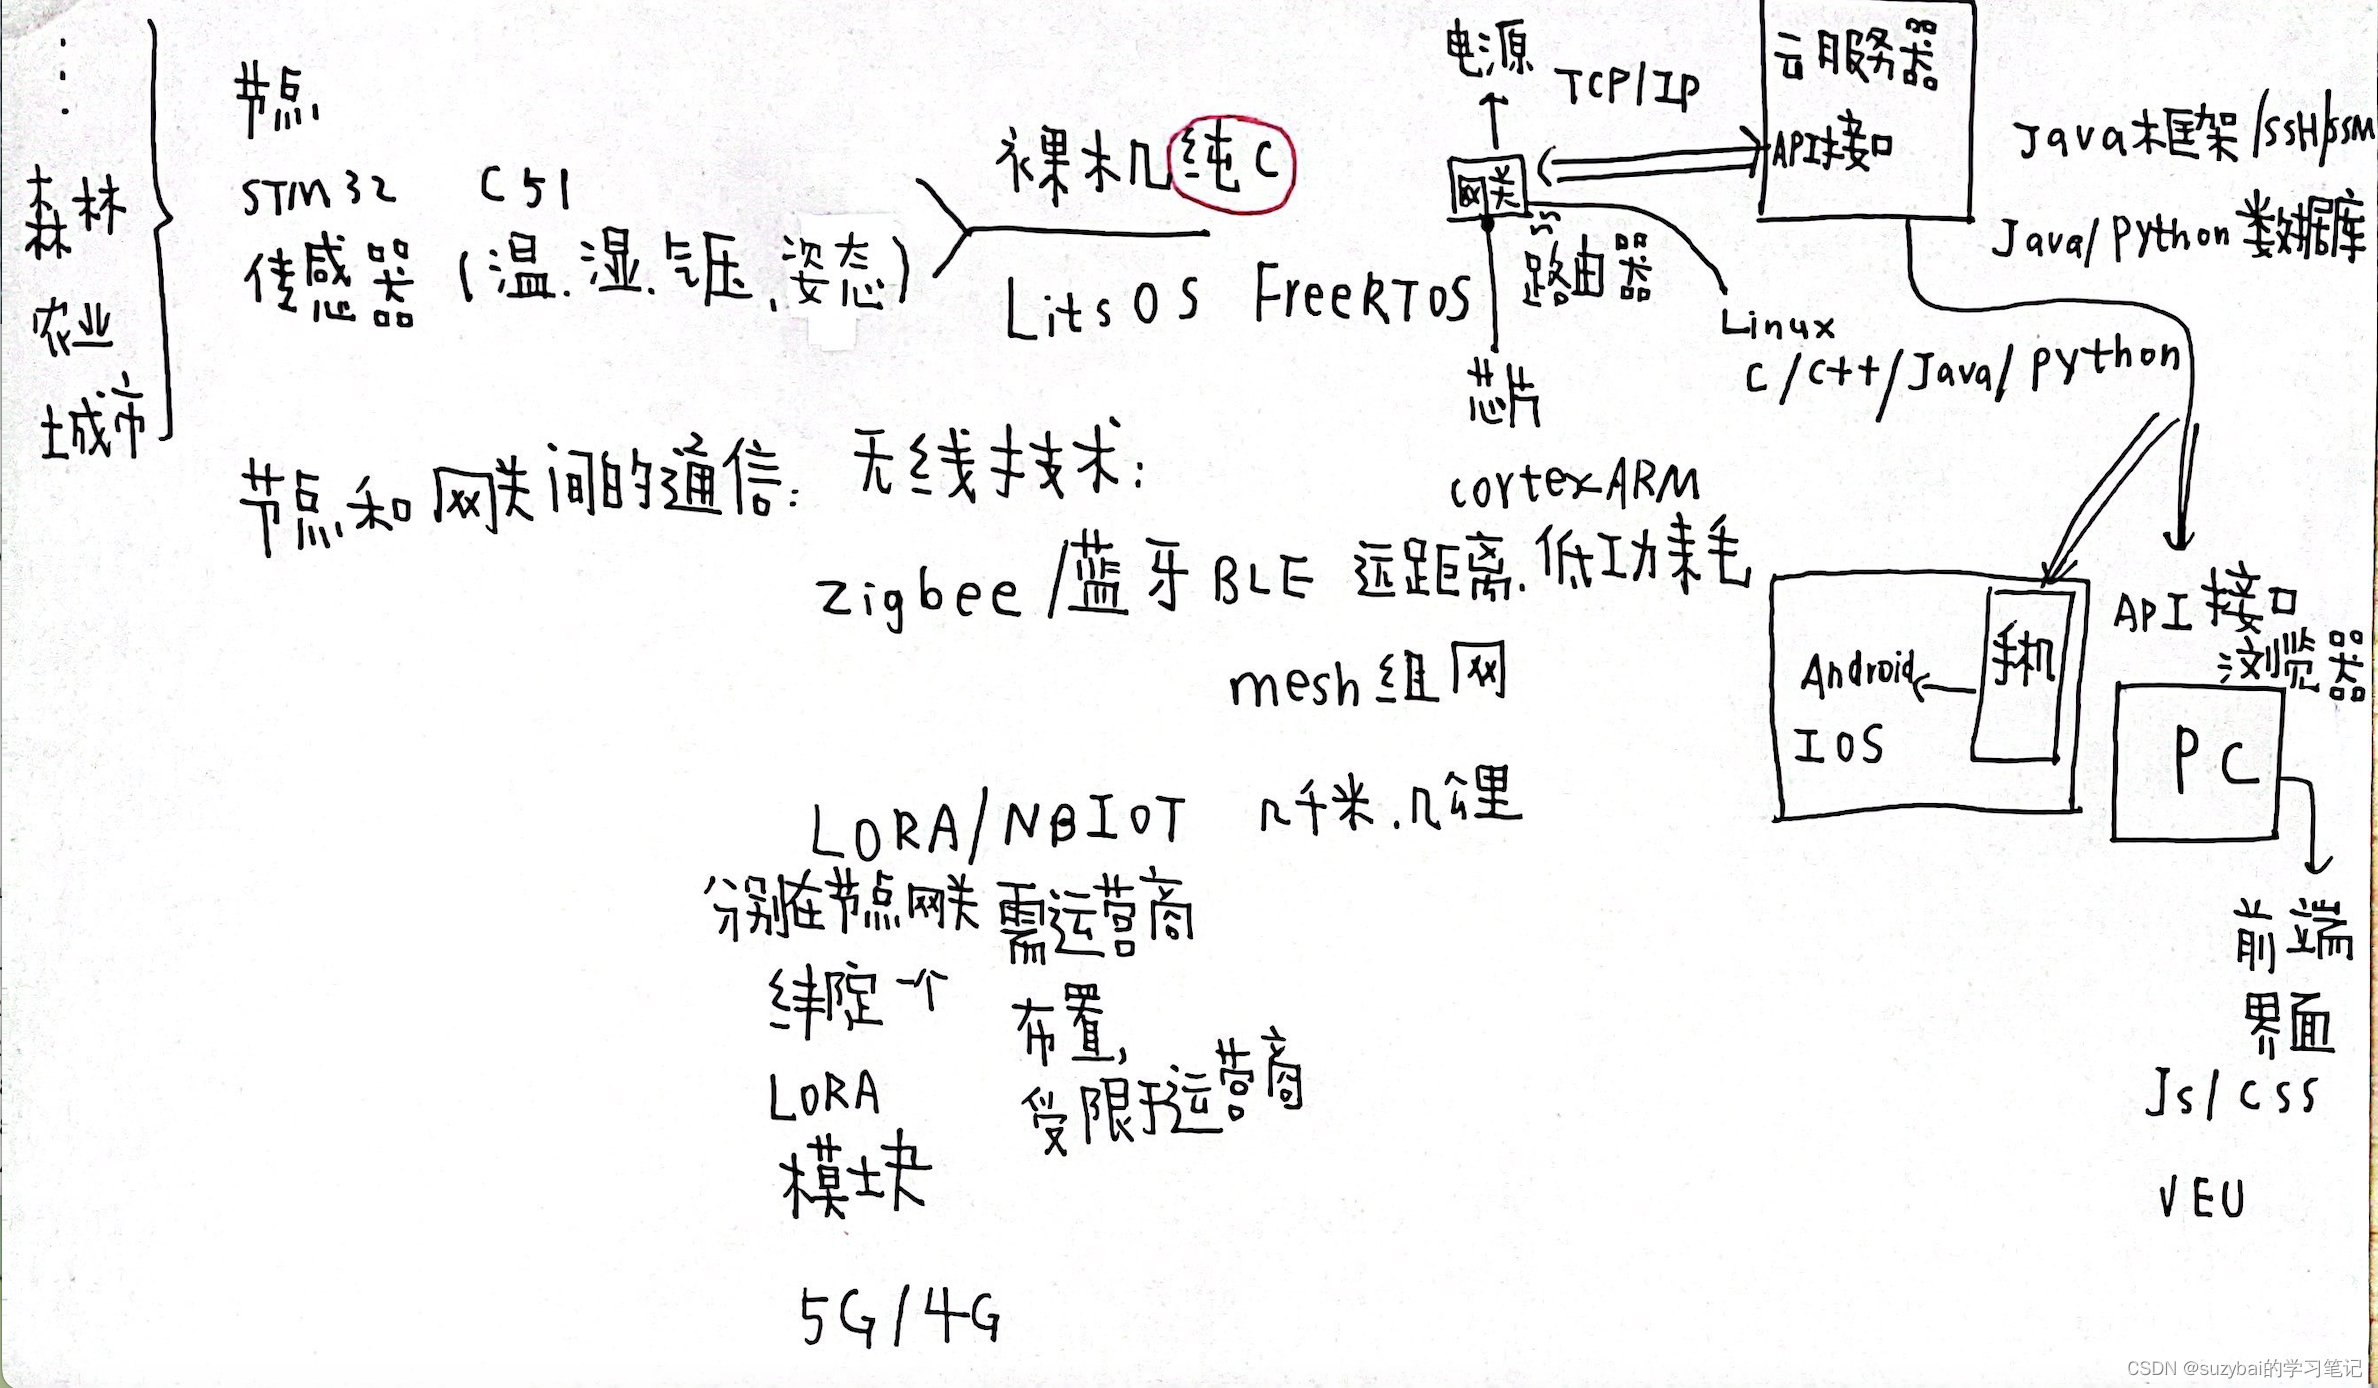 森林
农业
城市
节点
STM32 C51
传感器(温.湿.气压.姿态)
裸机纯C
LitsOS FreeRTOS
电源
TCP/IP
网关
路由器
芯片
cortexARM
Linux
C/C++/Java/python
云服务器
API接口
Java框架/SSH/SSM
Java/Python类数据库
节点和网关间的通信: 无线技术:
zigbee/蓝牙BLE 远距离.低功耗
mesh组网
LORA/NBIOT 几千米.几公里
分别在节点网关
绑定一个
LORA
模块
需运营商
布置,
受限于运营商
5G/4G
手机
Android
IOS
API接口
浏览器
PC
前端
界面
Js/css
VEU
CSDN @suzybai的学习笔记